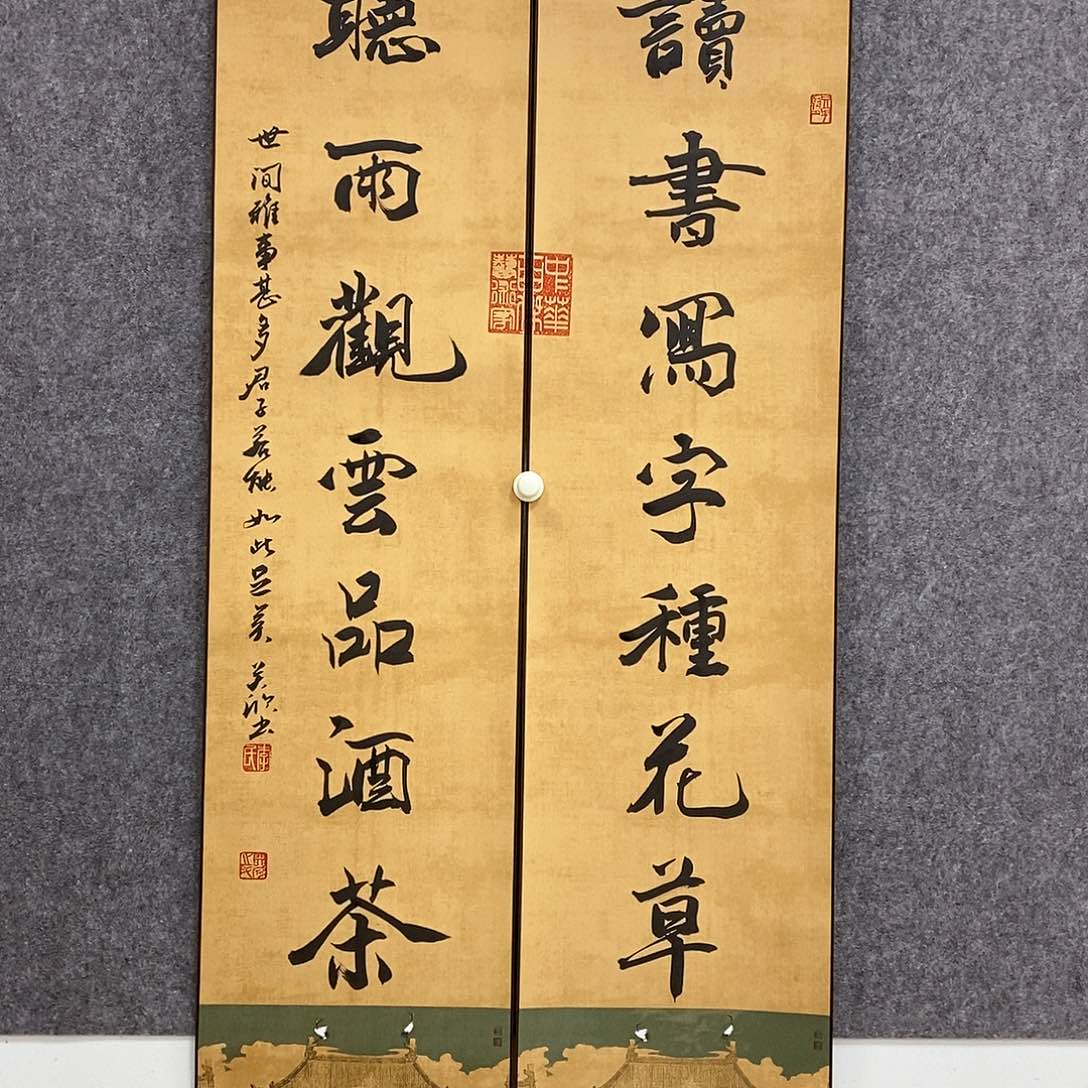 讀書寫字種花草
聽雨觀雲品酒茶
世间雅事甚多君子若能如此足矣